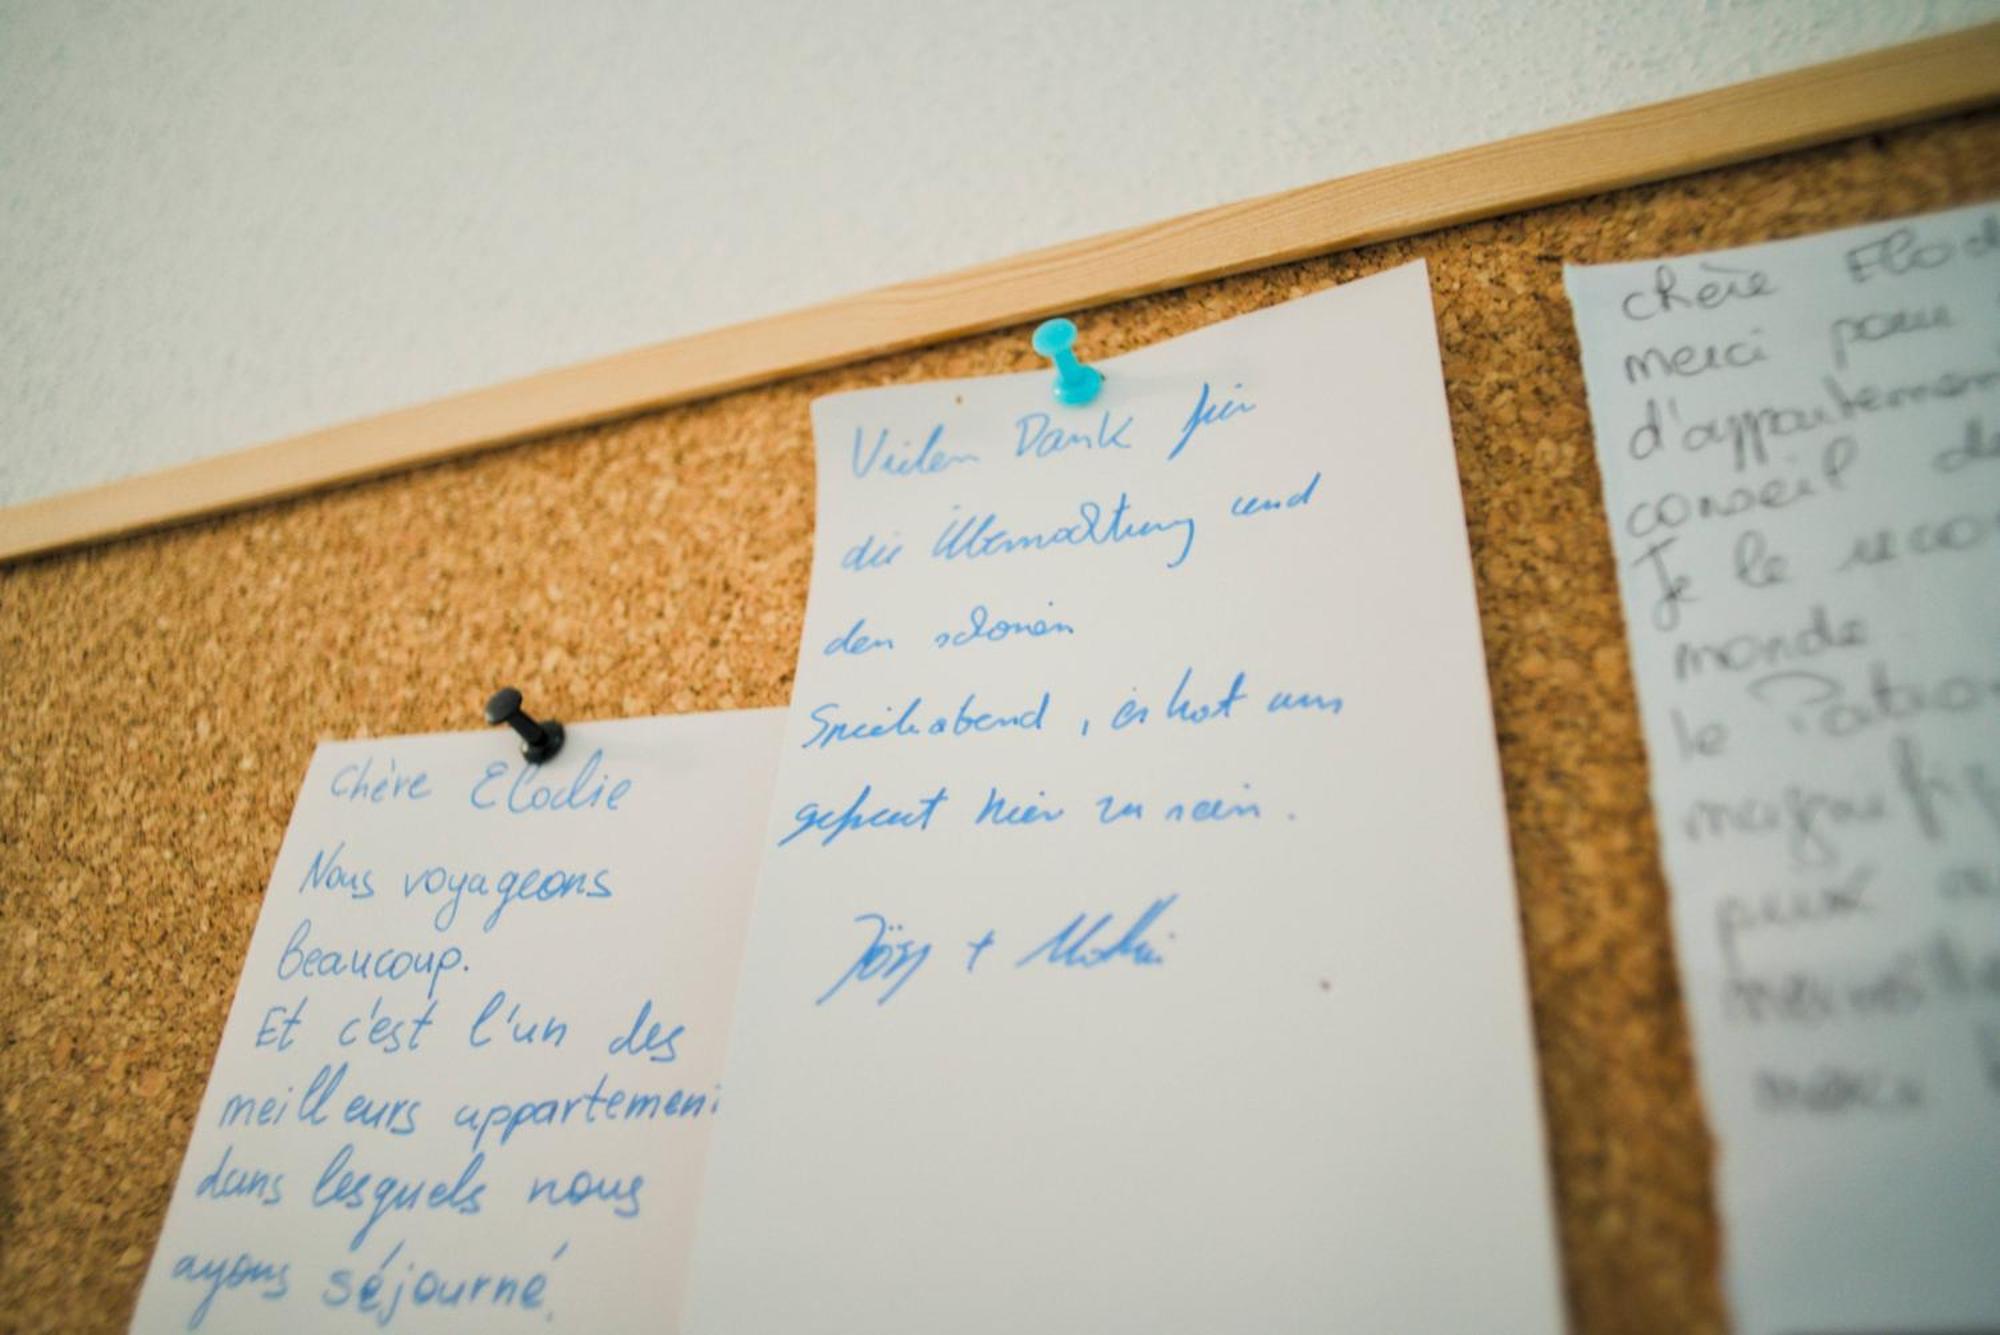 Chère Elodie
Nous voyageons
beaucoup.
Et c'est l'un des
meilleurs appartement
dans lesquels nous
ayons séjourné.
Vielen Dank für
die Übernachtung und
den schönen
Spieleabend, es hat uns
gefreut hier zu sein.
Jörg +
chère Elod
merci pour
d'appartement
conseil de
Je le reco
monde
le Patro
magnifi